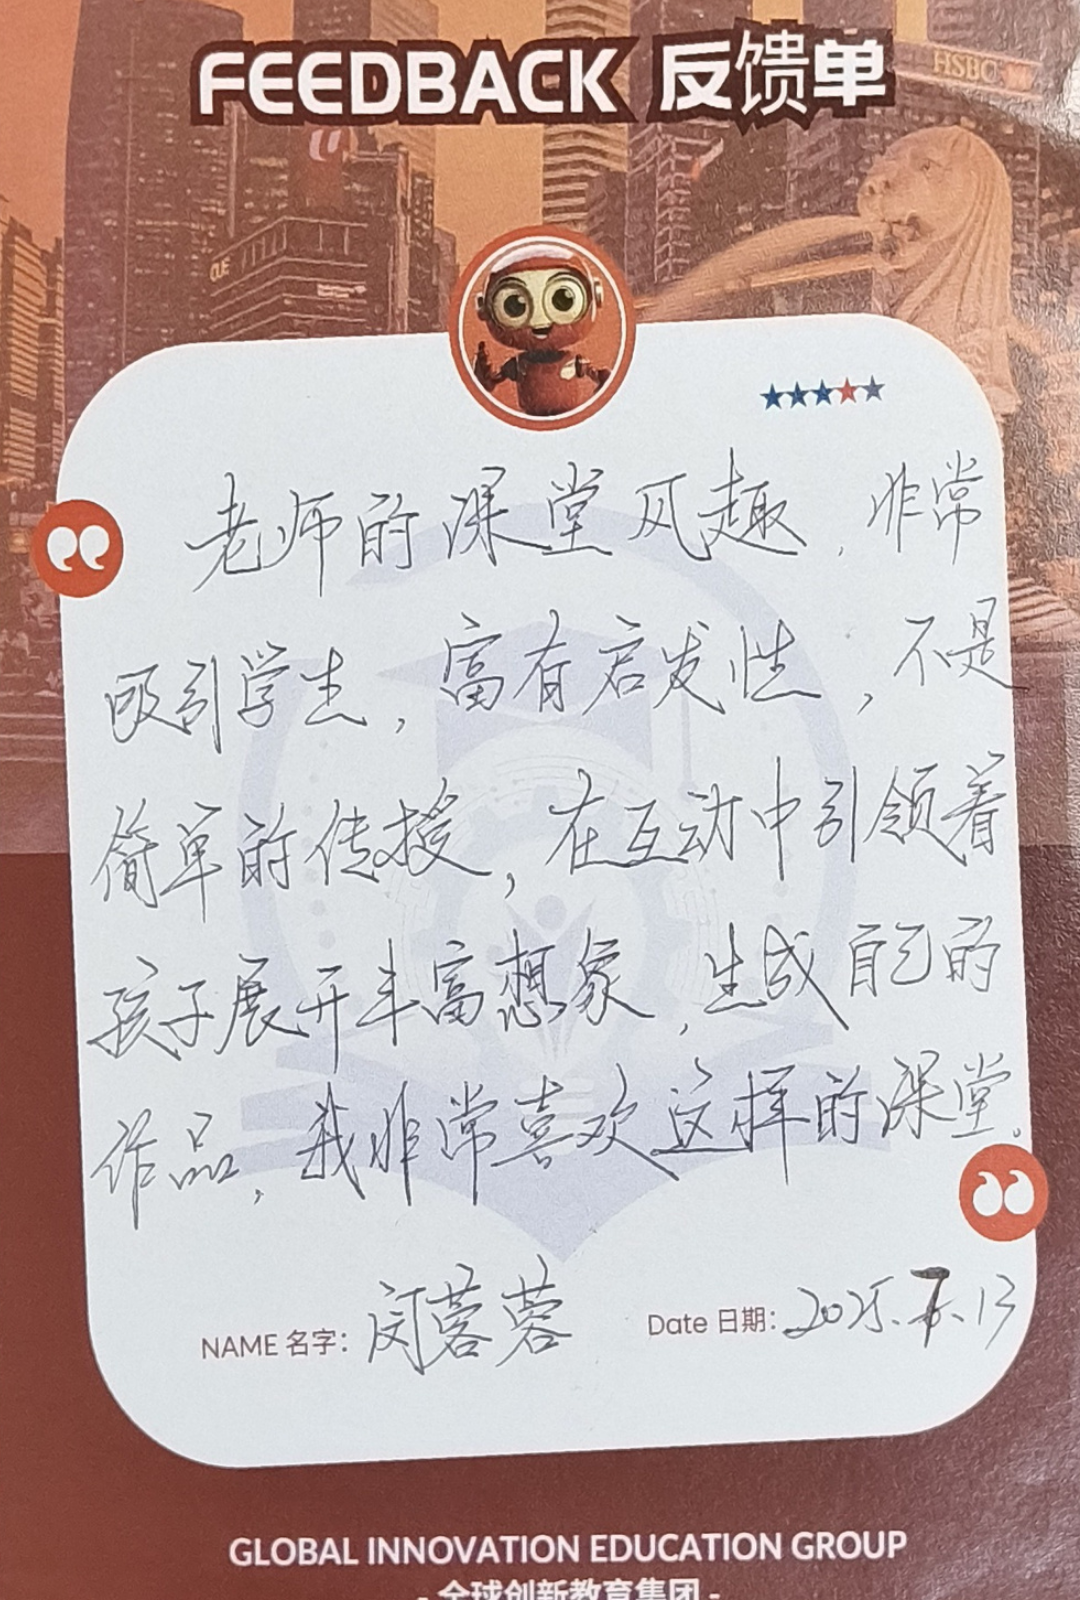 FEEDBACK 反馈单
HSBC
CUE
老师的课堂风趣，非常
吸引学生，富有启发性，不是
简单的传授，在互动中引领着
孩子展开丰富想象，生成自己的
作品，我非常喜欢这样的课堂。
NAME 名字：闵蓉蓉
Date 日期：2025.7.13
GLOBAL INNOVATION EDUCATION GROUP
- 全球创新教育集团 -